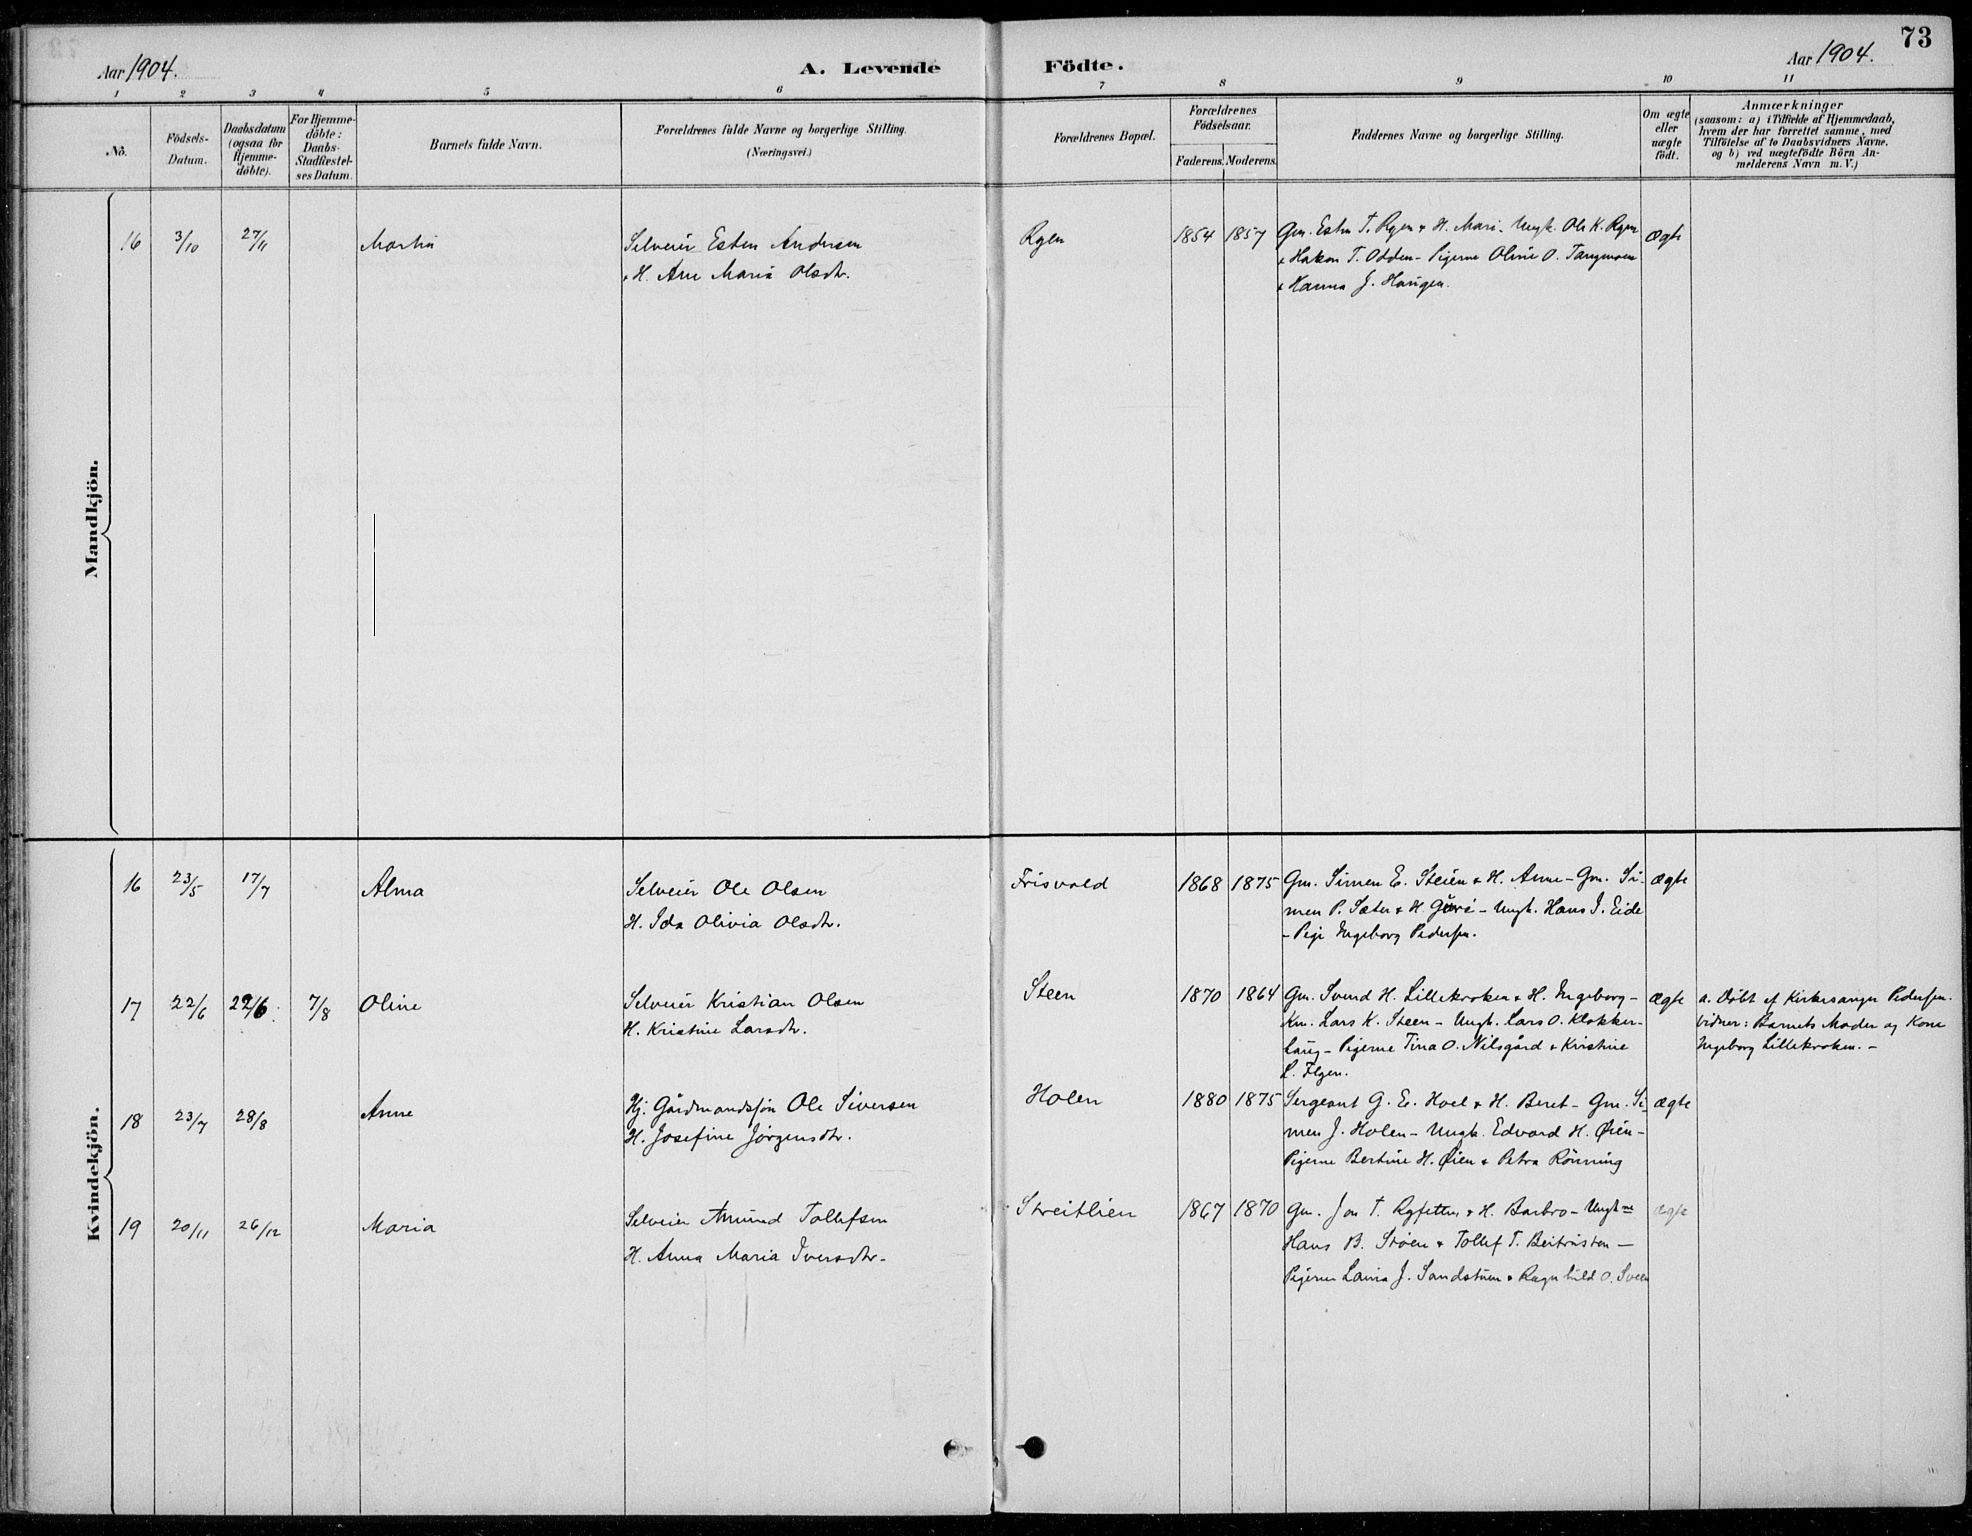 73
Aar 1904.
A. Levende Födte.
Aar 1904.
1 2 3 4 5 6 7 8 9 10 11
No.
Födsels-
Datum.
Daabsdatum
(ogsaa for
Hjemme-
döbte).
For Hjemme-
döbte:
Daabs-
Stadfæstel-
ses Datum.
Barnets fulde Navn.
Forældrenes fulde Navne og borgerlige Stilling.
(Næringsvei.)
Forældrenes Bopæl.
Forældrenes
Födselsaar.
Faderens. Moderens.
Faddernes Navne og borgerlige Stilling.
Om ægte
eller
uægte
födt.
Anmærkninger
(saasom: a) i Tilfælde af Hjemmedaab,
hvem der har forrettet samme, med
Tilföielse af to Daabsvidners Navne,
og b) ved uægtefödte Börn An-
melderens Navn m. V.)
Mandkjön.
16 3/10 27/11 Martin
Selveier Esten Andersen
& H. Ane Maria Olsdtr.
Rgen 1854 1857
Gm. Esten T. Rgen & H. Mari. Ungk. Ole K. Rgen
& Hakon T. Odden - Pigerne Oline O. Tangmoen
& Hanna J. Haugen.
ægte
Kvindekjön.
16 23/5 17/7 Alma
Selveier Ole Olsen
H. Ida Olivia Olsdtr.
Frisvold 1868 1875
Gm. Simen E. Steien & H. Anne - Gm. Si-
men P. Sæter & H. Guri - Ungk. Hans J. Eide
- Pige Ingeborg Pedersen.
ægte
17 22/6 22/6 7/8 Oline
Selveier Kristian Olsen
H. Kristine Larsdtr.
Steen 1870 1864
Gm. Svend H. Lillekroken & H. Ingeborg -
Km. Lars K. Steen - Ungk. Lars O. Klokker-
haug - Pigerne Tina O. Nilsgård & Kristine
L. Elgen.
ægte
a. Döbt af Kirkesanger Pedersen.
Vidner: Barnets Moder og Kone
Ingeborg Lillekroken. -
18 23/7 28/8 Anne
Hj. Gårdmandssøn Ole Siversen
H. Josefine Jørgensdtr.
Holen 1880 1875
Sergeant G. E. Hoel & H. Beret - Gm. Si-
men J. Holen - Ungk. Edvard H. Øien -
Pigerne Bertine H. Øien & Petra Rönning
ægte
19 20/11 26/12 Maria
Selveier Amund Tollefsen
H. Anna Maria Iversdtr.
Streitlien 1867 1870
Gm. Jon T. & H. Barbro - Ungkne
Hans B. Støen & Tollef T. Beitristen -
Pigerne Laura J. Sandstuen & Ragnhild O. Sveen
ægte